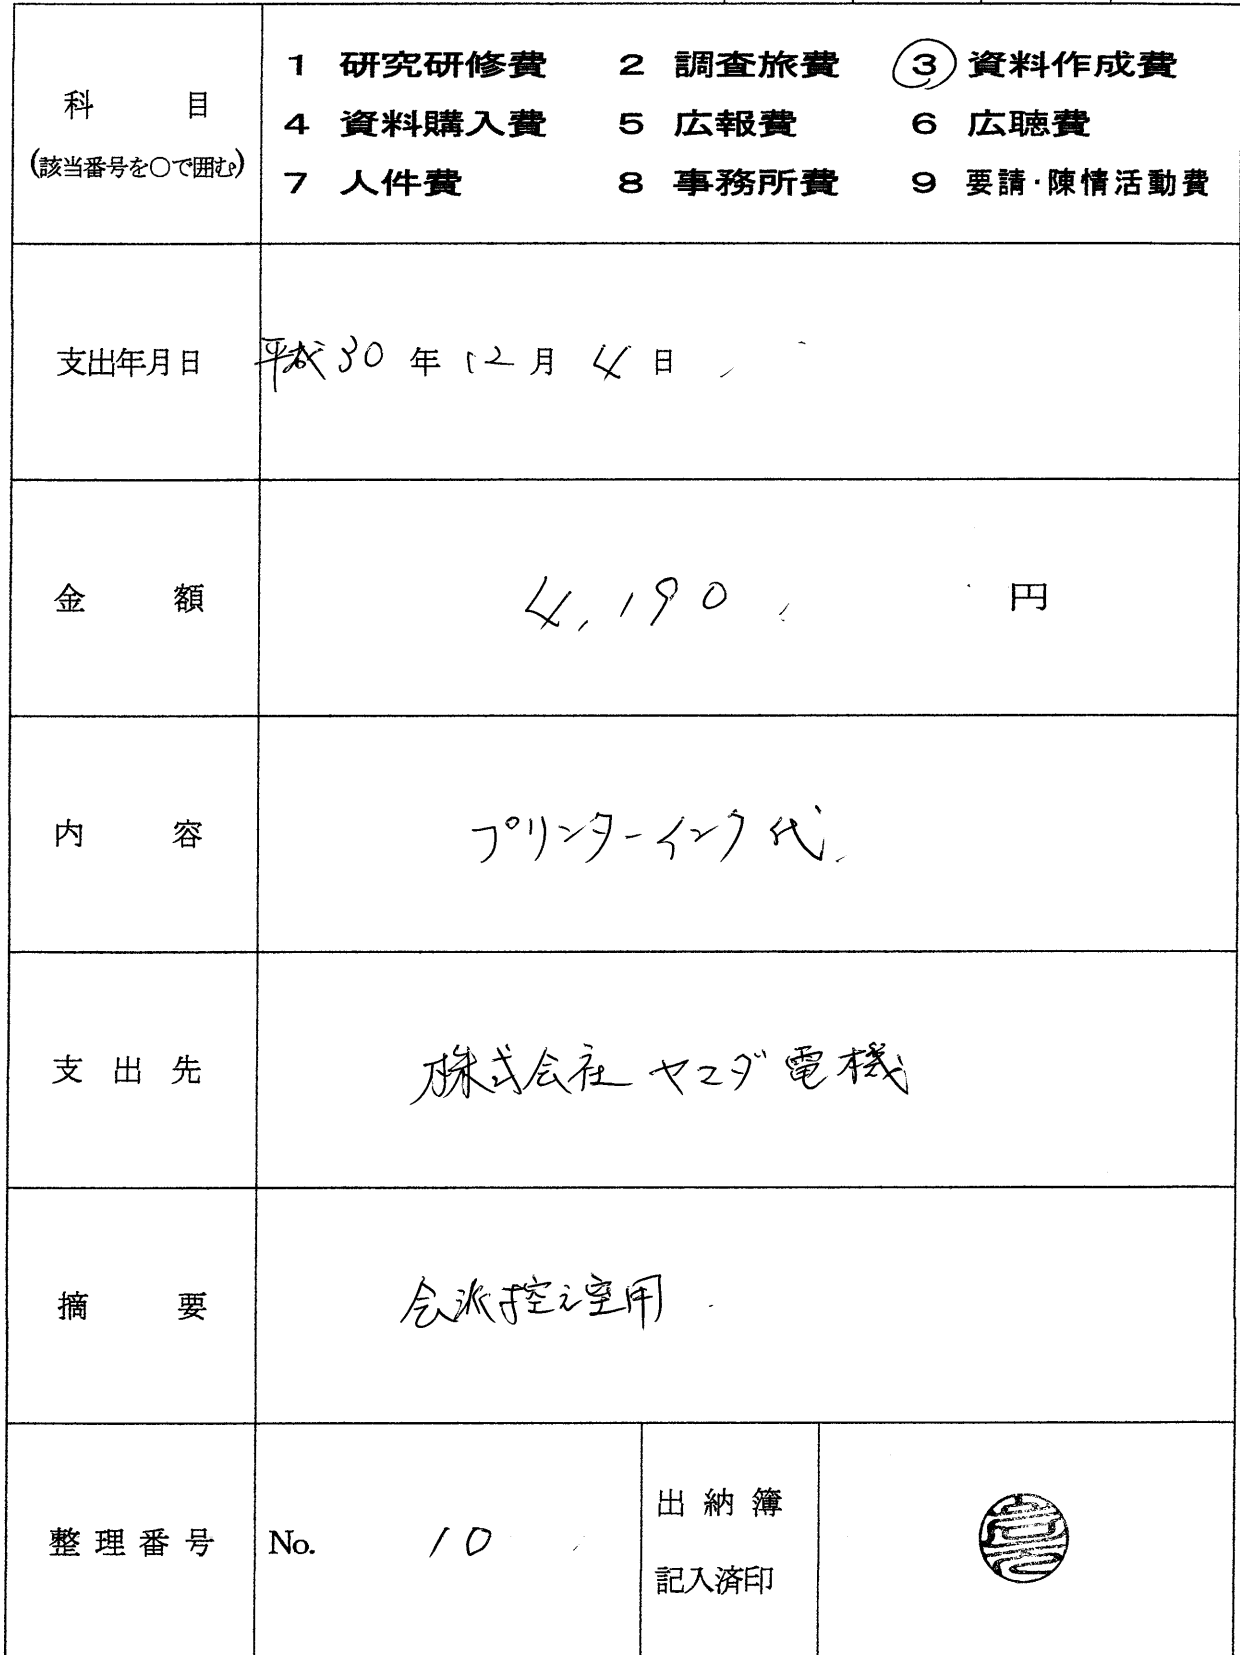 科 目
(該当番号を○で囲む)
1 研究研修費 2 調査旅費 3 資料作成費
4 資料購入費 5 広報費 6 広聴費
7 人件費 8 事務所費 9 要請・陳情活動費
支出年月日 平成30年12月4日
金 額 4,190 円
内 容 プリンターインク代
支出先 株式会社ヤマダ電機
摘 要 会派控え室用
整理番号 No. 10
出納簿
記入済印